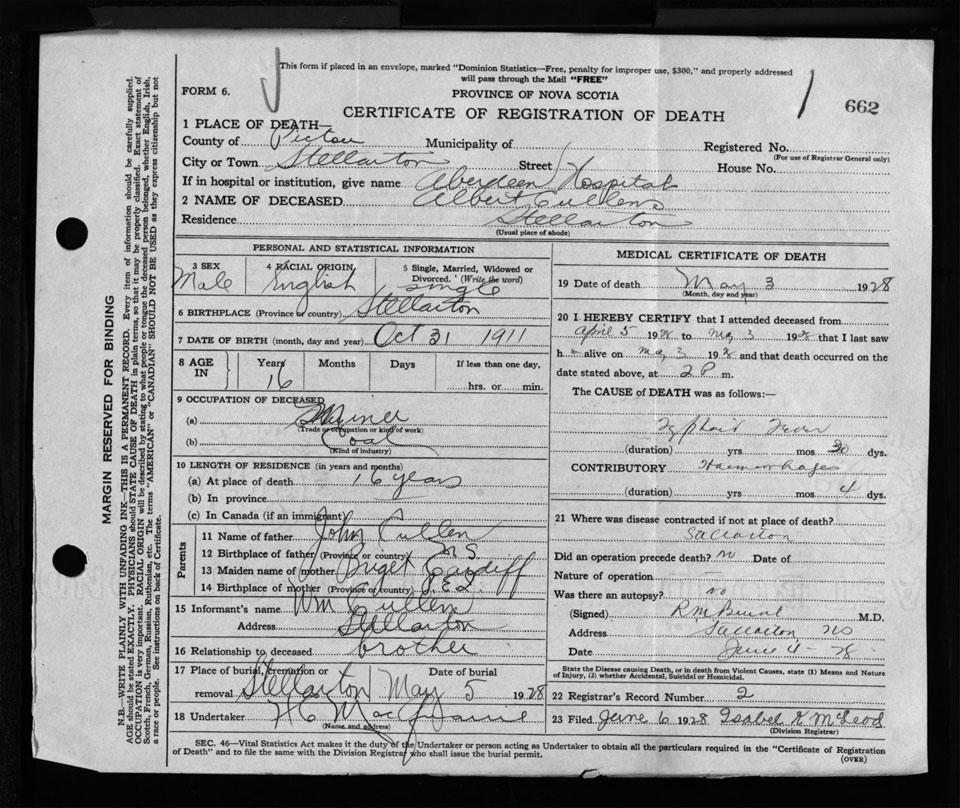 This form if placed in an envelope, marked "Dominion Statistics—Free, penalty for improper use, $300," and properly addressed
will pass through the Mail "FREE"
FORM 6.
PROVINCE OF NOVA SCOTIA
662
CERTIFICATE OF REGISTRATION OF DEATH
1 PLACE OF DEATH—
County of Pictou Municipality of Registered No.
(For use of Registrar General only)
City or Town Stellarton Street House No.
If in hospital or institution, give name Aberdeen Hospital
2 NAME OF DECEASED Albert Cullens
Residence Stellarton
(Usual place of abode)
PERSONAL AND STATISTICAL INFORMATION
3 SEX 4 RACIAL ORIGIN 5 Single, Married, Widowed or
Divorced. (Write the word)
Male English single
6 BIRTHPLACE (Province or country) Stellarton
7 DATE OF BIRTH (month, day and year) Oct 31 1911
8 AGE IN Years Months Days If less than one day,
16 hrs. or min.
9 OCCUPATION OF DECEASED
(a) Miner
(Trade or occupation or kind of work)
(b) Coal
(Kind of industry)
10 LENGTH OF RESIDENCE (in years and months)
(a) At place of death 16 years
(b) In province
(c) In Canada (if an immigrant)
Parents
11 Name of father John Cullen
12 Birthplace of father (Province or country) N S
13 Maiden name of mother Briget Cardiff
14 Birthplace of mother (Province or country) P.E.I.
15 Informant's name Wm Cullen
Address Stellarton
16 Relationship to deceased brother
17 Place of burial, cremation or Date of burial
removal Stellarton May 5 1928
18 Undertaker H C
(Name and address)
MEDICAL CERTIFICATE OF DEATH
19 Date of death May 3 1928
(Month, day and year)
20 I HEREBY CERTIFY that I attended deceased from
April 5 1928 to May 3 1928 that I last saw
h alive on May 3 1928 and that death occurred on
date stated above, at 2 P m.
The CAUSE of DEATH was as follows:—
Typhoid Fever
(duration) yrs mos 30 dys.
CONTRIBUTORY Haemorrhages
(duration) yrs. mos 4 dys.
21 Where was disease contracted if not at place of death?
Stellarton
Did an operation precede death? no Date of
Nature of operation
Was there an autopsy? no
(Signed) R M M.D.
Address Stellarton, NS
Date June 4 - 28
State the Disease causing Death, or in death from Violent Causes, state (1) Means and Nature
of Injury, (2) whether Accidental, Suicidal or Homicidal.
22 Registrar's Record Number 2
23 Filed June 6 1928 Isabel K McLeod
(Division Registrar)
SEC. 46—Vital Statistics Act makes it the duty of the Undertaker or person acting as Undertaker to obtain all the particulars required in the "Certificate of Registration
of Death" and to file the same with the Division Registrar who shall issue the burial permit.
(OVER)
MARGIN RESERVED FOR BINDING
N.B.—WRITE PLAINLY WITH UNFADING INK—THIS IS A PERMANENT RECORD. Every item of information should be carefully supplied.
AGE should be stated EXACTLY. PHYSICIANS should STATE CAUSE OF DEATH in plain terms, so that it may be properly classified. Exact statement of
OCCUPATION is very important. RACIAL ORIGIN will be described by stating to what people or tongue the deceased person belonged, whether English, Irish,
Scotch, French, German, Russian, Ruthenian, etc. The terms "AMERICAN" or "CANADIAN" SHOULD NOT BE USED as they express citizenship but not
a race or people. See instructions on back of Certificate.